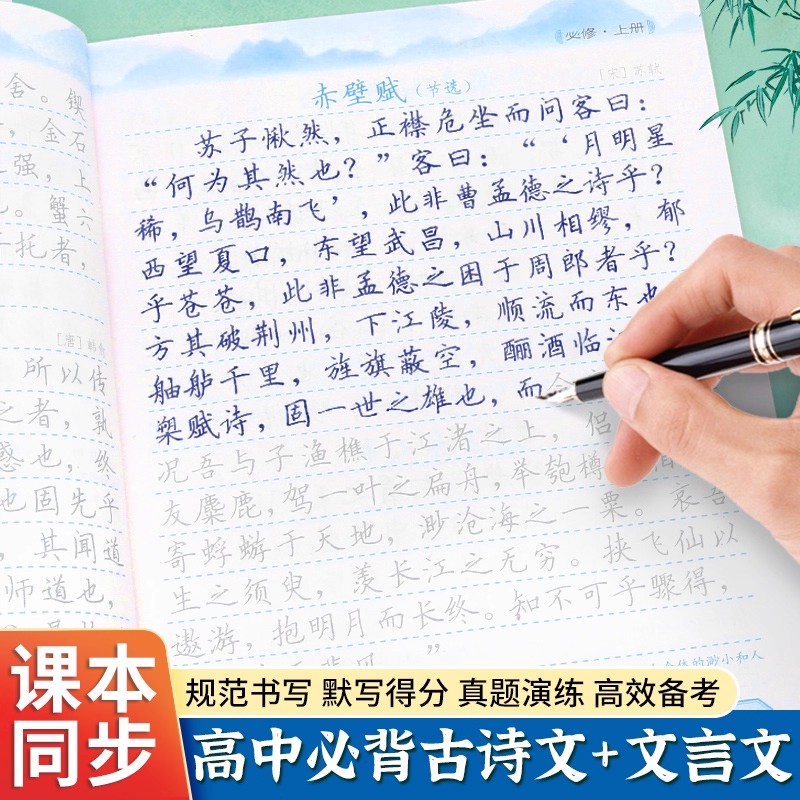 舍。锲
金石
强，上
蟹六
托者，
[唐]
所以传
之者，孰
惑也，终
也固先乎
其闻道
师道也，
必修·上册
赤壁赋（节选）
[宋] 苏轼
苏子愀然，正襟危坐而问客曰：
“何为其然也？”客曰：“‘月明星
稀，乌鹊南飞’，此非曹孟德之诗乎？
西望夏口，东望武昌，山川相缪，郁
乎苍苍，此非孟德之困于周郎者乎？
方其破荆州，下江陵，顺流而东也
舳舻千里，旌旗蔽空，酾酒临
槊赋诗，固一世之雄也，而
况吾与子渔樵于江渚之上，侣
友麋鹿，驾一叶之扁舟，举匏樽
寄蜉蝣于天地，渺沧海之一粟。哀吾
生之须臾，羡长江之无穷。挟飞仙以
遨游，抱明月而长终。知不可乎骤得，
的渺小和人
课本
同步
规范书写 默写得分 真题演练 高效备考
高中必背古诗文+文言文